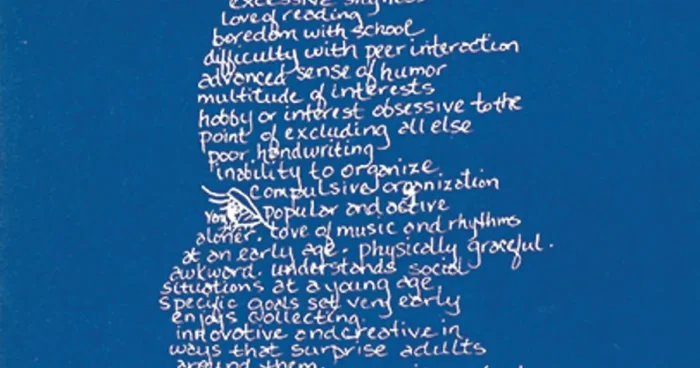 excessive shyness
love of reading
boredom with school
difficulty with peer interaction
advanced sense of humor
multitude of interests
hobby or interest obsessive to the
point of excluding all else
poor handwriting
inability to organize.
compulsive organization
very popular and active
a loner. love of music and rhythms
at an early age. physically graceful.
awkward. understands social
situations at a young age
specific goals set very early
enjoys collecting.
innovative and creative in
ways that surprise adults
around them